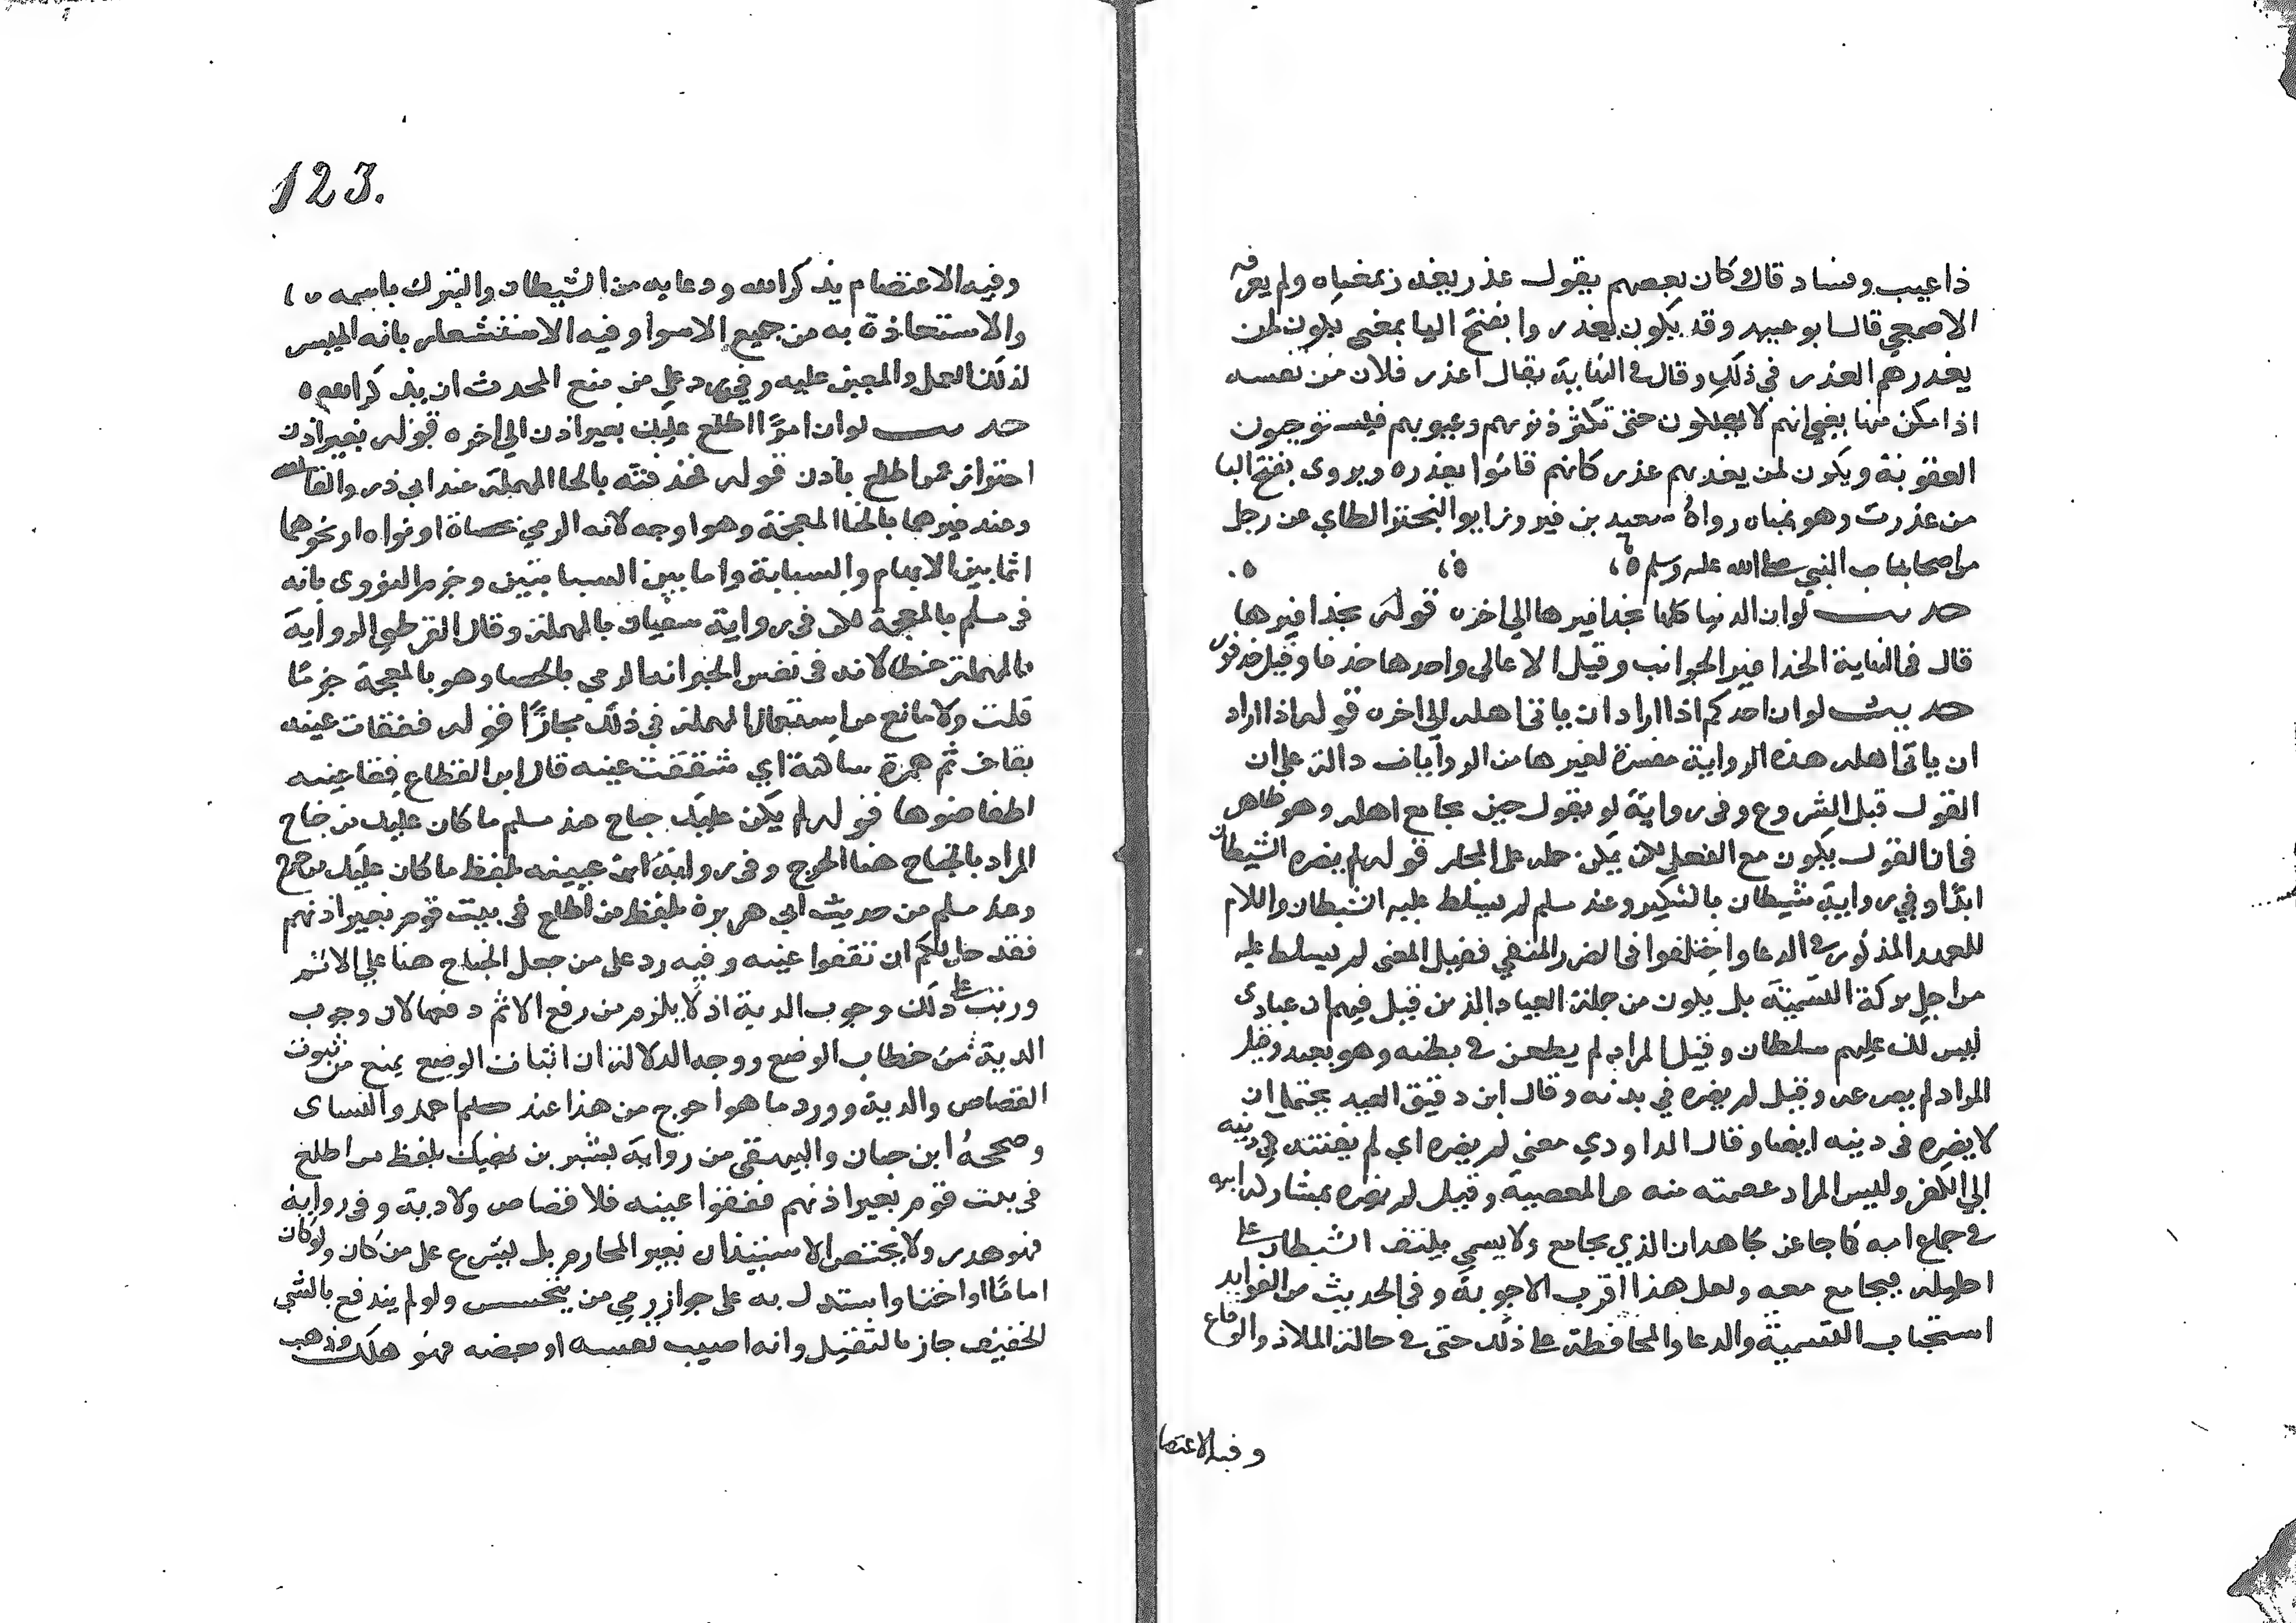 ذا عيب وفساد قال كان بعضهم يقول عذر يعذر بمعناه ولم يعرفه
الاصمعي قال ابو عبيد وقد يكون يعذروا بفتح اليا بمعنى يكون لمن
يعذرهم العذر في ذلك وقال في النهاية يقال اعذر فلان من نفسه
اذا مكن منها يعني انهم لا يهلكون حتى تكثر ذنوبهم وعيوبهم فيستوجبون
العقوبة ويكون لمن يعذبهم عذر كانهم قاموا بعذره ويروى بفتح اليا
من عذرت وهو بمعناه رواه سعيد بن فيروز ابو البختري الطاي عن رجل
من اصحاب النبي صلى الله عليه وسلم
حديث لوان الدنيا كلها بحذافيرها الى اخره قوله بحذافيرها
قال في النهاية الحذافير الجوانب وقيل الاعالي واحدها حذفا وقيل حذفور
حديث لوان احدكم اذا اراد ان ياتي اهله الى اخره قوله اذا اراد
ان ياتي اهله هذه الرواية مفسرة لغيرها من الروايات دالة على ان
القول قبل الشروع وفي رواية لو يقول حين يجامع اهله وهو ظاهر
في ان القول يكون مع الفعل لكن يمكن حمله على المجاز قوله لم يضره الشيطان
ابدا وفي رواية شيطان بالتنكير وعند مسلم لم يسلط عليه الشيطان واللام
للعهد المذكور في الدعا واختلفوا في الضرر المنفي فقيل المعنى لم يسلط عليه
من اجل بركة التسمية بل يكون من جملة العباد الذين قيل فيهم ان عبادي
ليس لك عليهم سلطان وقيل المراد لم يطعن في بطنه وهو بعيد وقيل
المراد لم يصرعه وقيل لم يضره في بدنه وقال ابن دقيق العيد يحتمل ان
لا يضره في دينه ايضا وقال الداودي معنى لم يضره اي لم يفتنه في دينه
الى الكفر وليس المراد عصمته منه عن المعصية وقيل لم يضره بمشاركة ابيه
في جماع امه كما جا عن مجاهد ان الذي يجامع ولا يسمي يلتف الشيطان على
احليله فيجامع معه ولعل هذا اقرب الاجوبة وفي الحديث من الفوايد
استحباب التسمية والدعا والمحافظة على ذلك حتى في حالة الملاذ والوقاع
وفيه الاعتصا
123.
وفيه الاعتصام بذكر الله ودعايه من الشيطان والتبرك باسمه
والاستعاذة به من جميع الاسوا وفيه الاستشعار بانه الميسر
لذلك العمل والمعين عليه وفيه رد على من منع المحدث ان يذكر الله
حديث لوان امرًا اطلع عليك بغير اذن الى اخره قوله بغير اذن
احتراز عمن اطلع باذن قوله فحذفته بالحا المهملة عند ابي ذر والقابسي
وعند غيرهما بالخا المعجمة وهو اوجه لانه الرمي بحصاة او نواه او نحوهما
اما بين الابهام والسبابة واما بين السبابتين وجزم النووي بانه
في مسلم بالمعجمة لكن في رواية سفيان بالمهملة وقال القرطبي الرواية
بالمهملة خطا لان في نفس الخبر انه الرمي بالحصا وهو بالمعجمة جزمًا
قلت ولا مانع من استعمال المهملة في ذلك مجازًا قوله ففقات عينه
بقاف ثم همزة ساكنة اي شققت عينه قال ابن القطاع فقا عينه
اطفا ضوها قوله لم يكن عليك جناح عند مسلم ما كان عليك من جناح
المراد بالجناح هنا الحرج وفي رواية ابن عيينه بلفظ ما كان عليك من حرج
وعند مسلم من حديث ابي هريرة بلفظ من اطلع في بيت قوم بغير اذنهم
فقد حل لكم ان تفقوا عينه وفيه رد على من حمل الجناح هنا على الاثم
ورتب على ذلك وجوب الدية اذ لا يلزم من رفع الاثم دفعها لان وجوب
الدية من خطاب الوضع ووجه الدلالة ان اثبات الوضع يمنع من ثبوت
القصاص والدية وورد ما هو احرج من هذا عند مسلم احمد والنساى
وصححه ابن حبان والبيهقي من رواية بشير بن نهيك بلفظ من اطلع
في بيت قوم بغير اذنهم ففقوا عينه فلا قصاص ولا دية وفي رواية
فهو هدر ولا يختص الاستيذان بغير المحارم بل يشرع على من كان ولو كان
اما او اختا واستدل به على جواز رمي من يتجسس ولو لم يندفع بالشي
الخفيف جاز بالثقيل وانه اصيب نفسه او بعضه فهو هلك وذهب